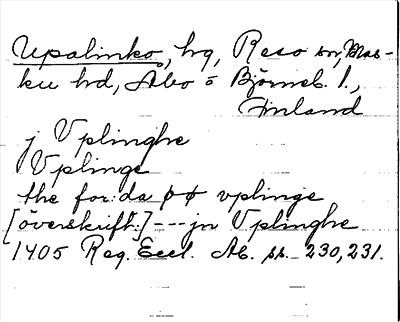 Upalinko, hg, Reso sn, Mas-
ku hd, Åbo o Björneb. l.,
Finland
j Vplinghe
Vplinge
the for:da øø vplinge
[överskrift:] --- jn Vplinghe
1405 Reg. Eccl. Ab. ss. 230, 231.